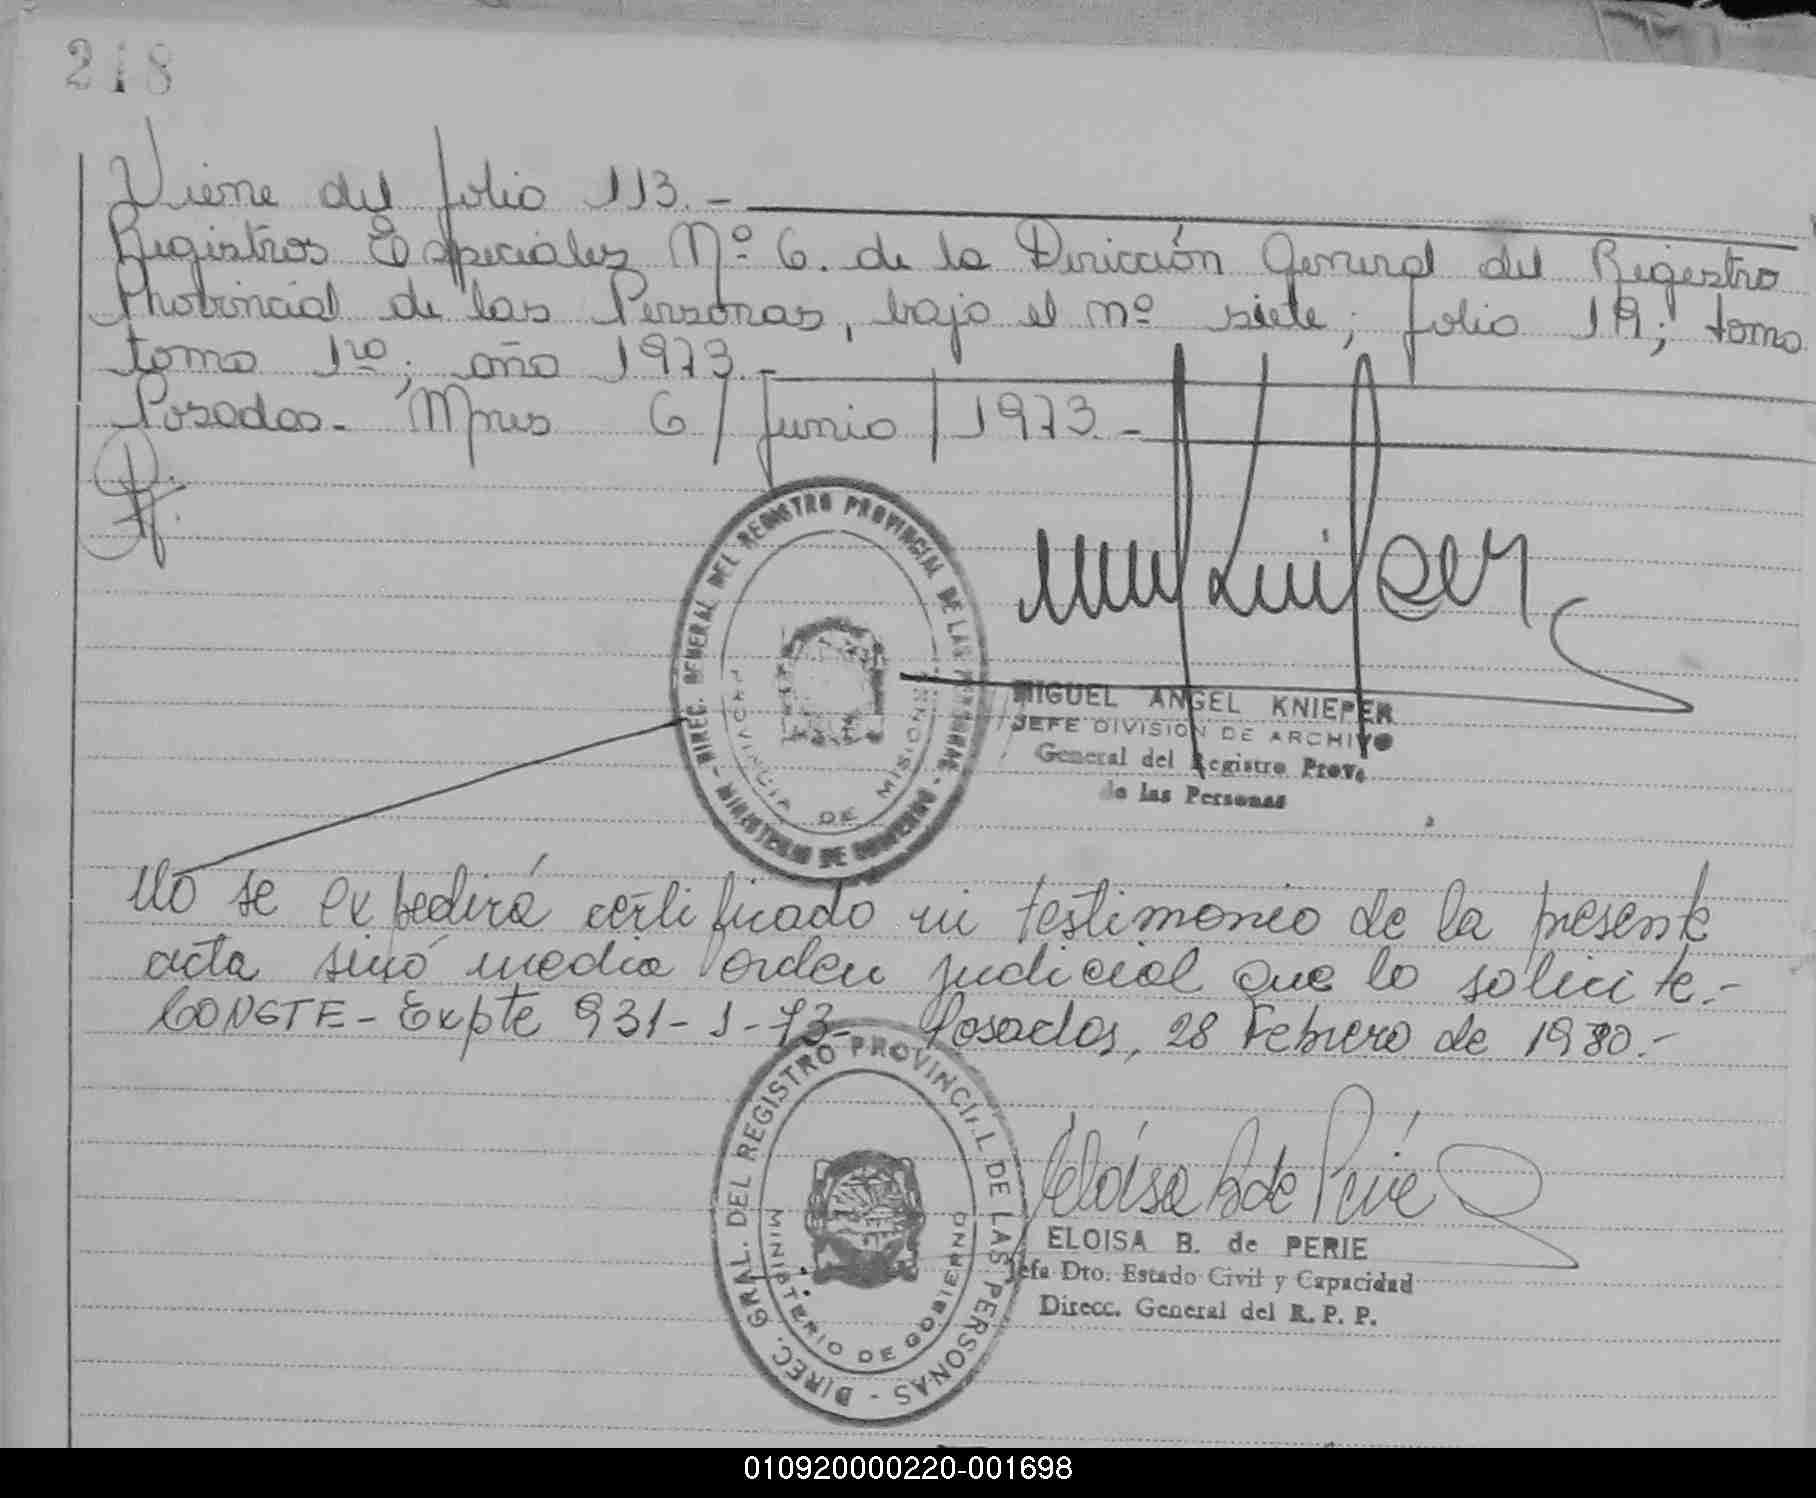 218
Viene del folio 113.-
Registros Especiales Nº 6. de la Dirección General del Registro
Provincial de las Personas, bajo el nº siete; folio 19; tomo
tomo 1ro; año 1973.-
Posadas - Mnes 6/junio/1973.-
DIREC. GENERAL DEL REGISTRO PROVINCIAL DE LAS PERSONAS - MINISTERIO DE GOBIERNO -
PROVINCIA DE MISIONES
MIGUEL ANGEL KNIEPER
JEFE DIVISION DE ARCHIVO
General del Registro Prov.
de las Personas
No se expedirá certificado ni testimonio de la presente
acta sinó media orden judicial que lo solicite.-
CONSTE - Expte 931-J-73- Posadas, 28 Febrero de 1980.-
DIREC. GRAL. DEL REGISTRO PROVINCIAL DE LAS PERSONAS -
MINISTERIO DE GOBIERNO
Eloisa B de Perié
ELOISA B. de PERIE
Jefa Dto. Estado Civil y Capacidad
Direcc. General del R. P. P.
010920000220-001698